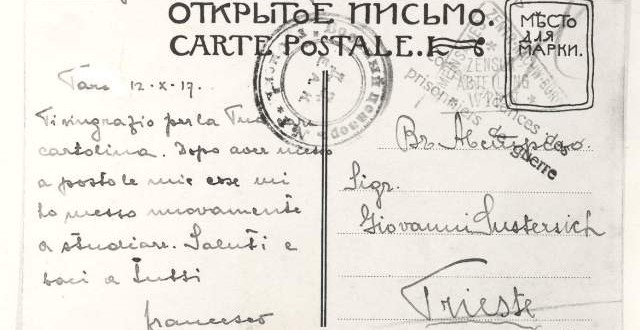 ОТКРЫТОЕ ПИСЬМО.
CARTE POSTALE.
МѢСТО
ДЛЯ
МАРКИ.
ZENSUR
ABTEILUNG
prisonniers de
guerre
Tara 12-X-17.
Ti ringrazio per la Tua
cartolina. Dopo aver messo
a posto le mie cose mi
ho messo nuovamente
a studiare. Saluti e
baci a tutti
francesco
Sigr.
Giovanni Sustersich
Trieste